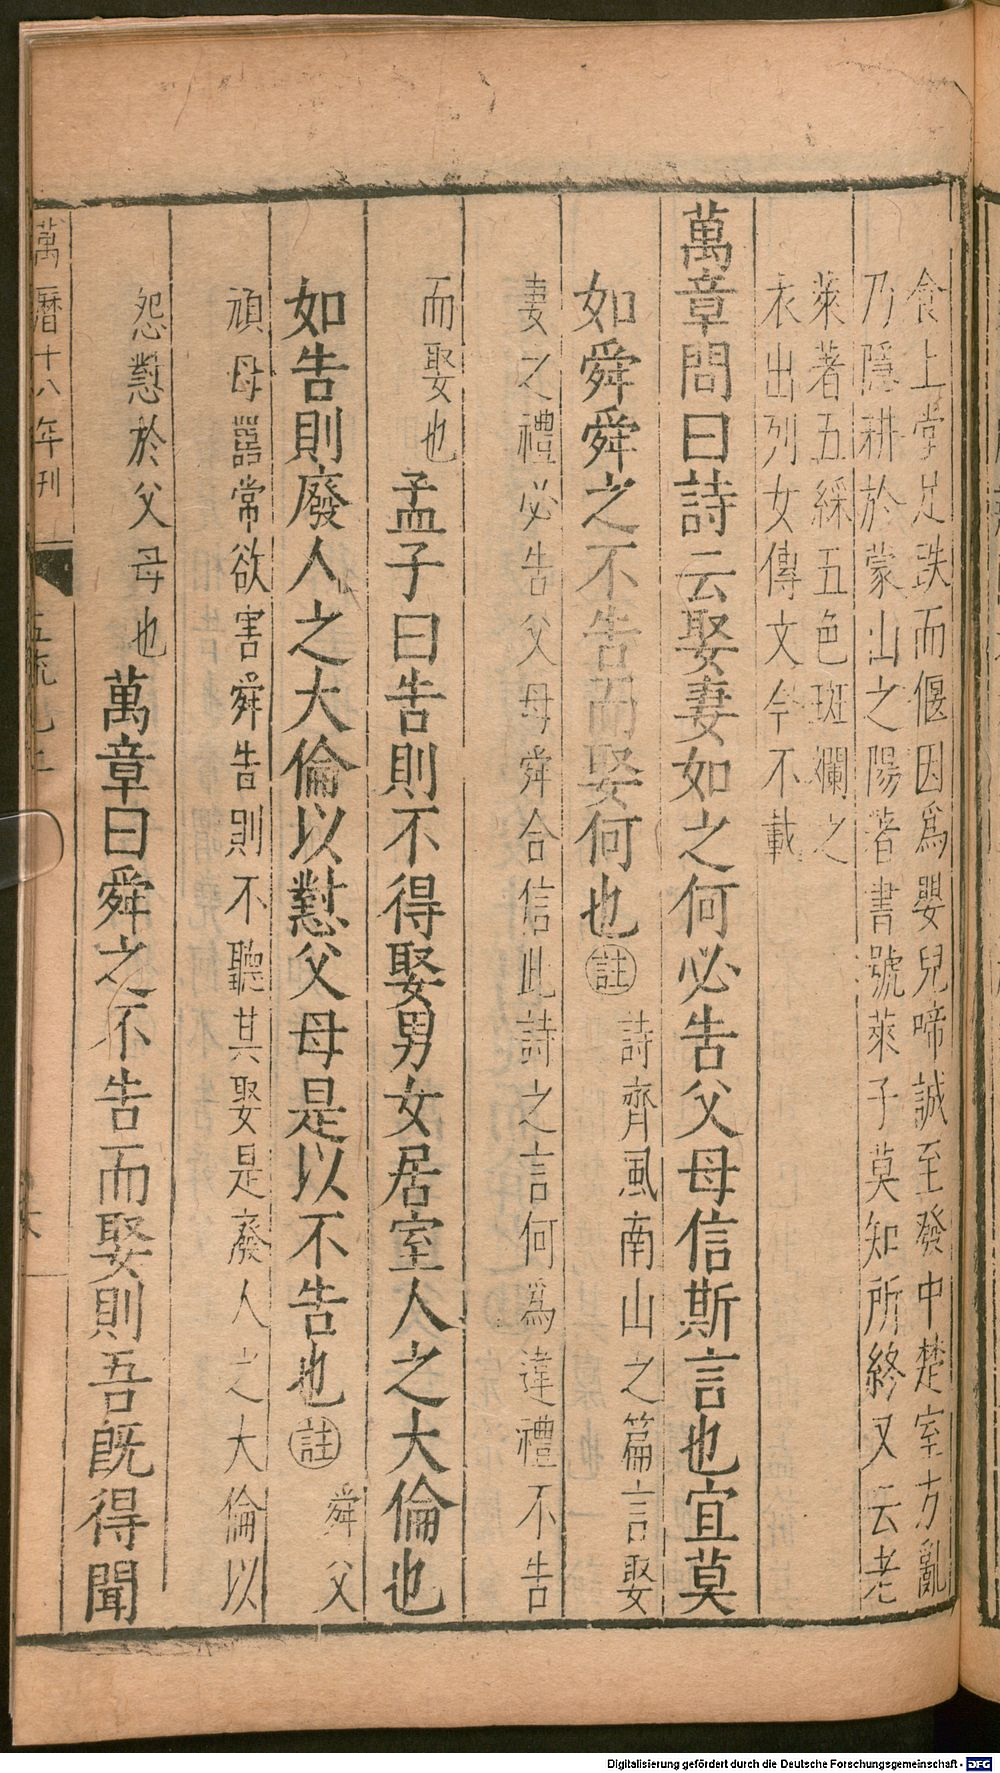 食上堂足跌而偃因爲嬰兒啼誠至發中楚室方亂
乃隱耕於蒙山之陽著書號萊子莫知所終又云老
萊著五綵五色斑斕之
衣出列女傳文今不載
萬章問曰詩云娶妻如之何必告父母信斯言也宜莫
如舜舜之不告而娶何也註
詩齊風南山之篇言娶
妻之禮必告父母舜合信此詩之言何爲違禮不告
而娶也
孟子曰告則不得娶男女居室人之大倫也
如告則廢人之大倫以懟父母是以不告也註
舜父
頑母嚚常欲害舜告則不聽其娶是廢人之大倫以
怨懟於父母也
萬章曰舜之不告而娶則吾旣得聞
萬曆十八年刊
Digitalisierung gefördert durch die Deutsche Forschungsgemeinschaft - DFG